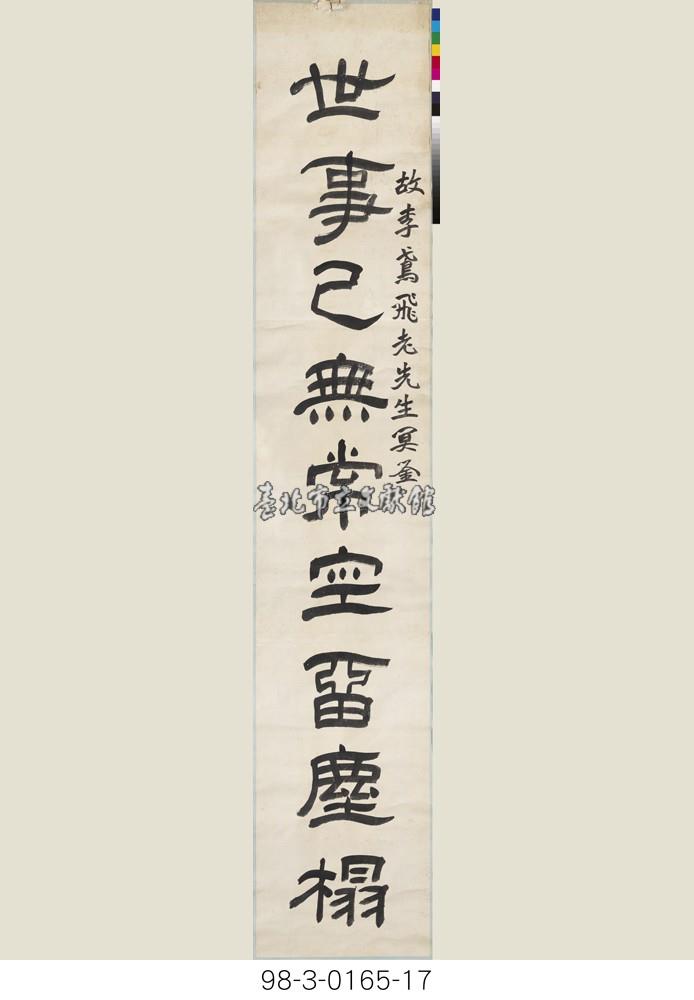 故李鳶飛老先生冥鉴
世事已無常空畱塵榻
臺北市立文獻館
98-3-0165-17